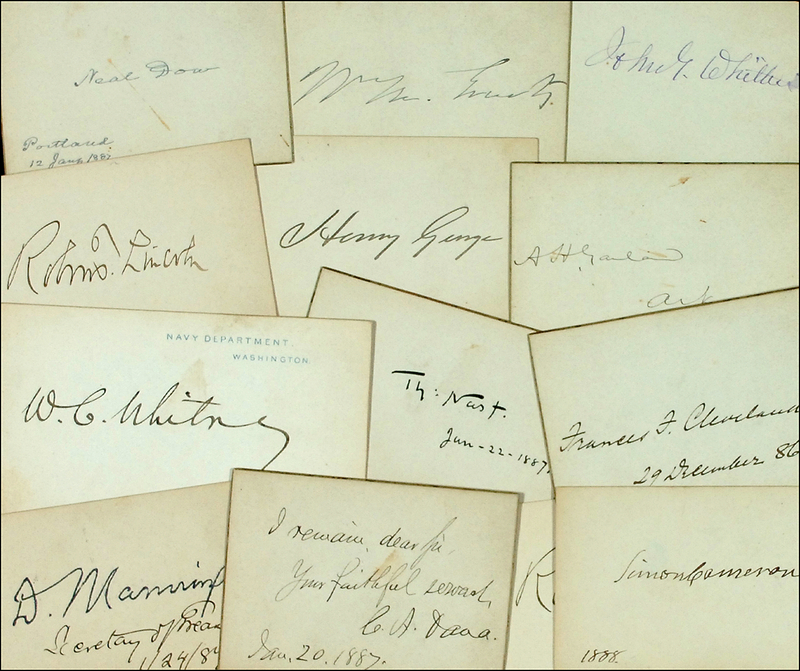 Neal Dow
Portland.
12 Jany 1887.
Wm M.
John G. Whittier
Robt. T. Lincoln
Henry George
A H Garland
Ark
NAVY DEPARTMENT.
WASHINGTON.
W. C. Whitney
Th: Nast.
Jan-22-1887.
Frances F. Cleveland
29 December 86
D. Manning
Secretary of Treas
1/24/87
I remain, dear Sir,
Your faithful servant,
C. A. Dana.
Jan. 20. 1887.
R
Simon Cameron
1888.